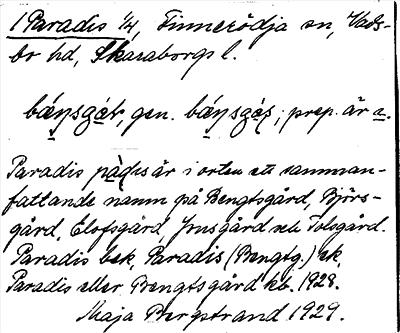 1 Paradis 1/4, Finnerödja sn, Vads-
bo hd, Skaraborgs l.
gen. prep. är a.
Paradis är i orten ett samman-
fattande namn på Bengtsgård, Björs-
gård, Elofsgård, Jonsgård och Tolsgård.
Paradis bek, Paradis (Bengtsg.) ek,
Paradis eller Bengtsgård kb. 1928.
Maja Bergstrand 1929.